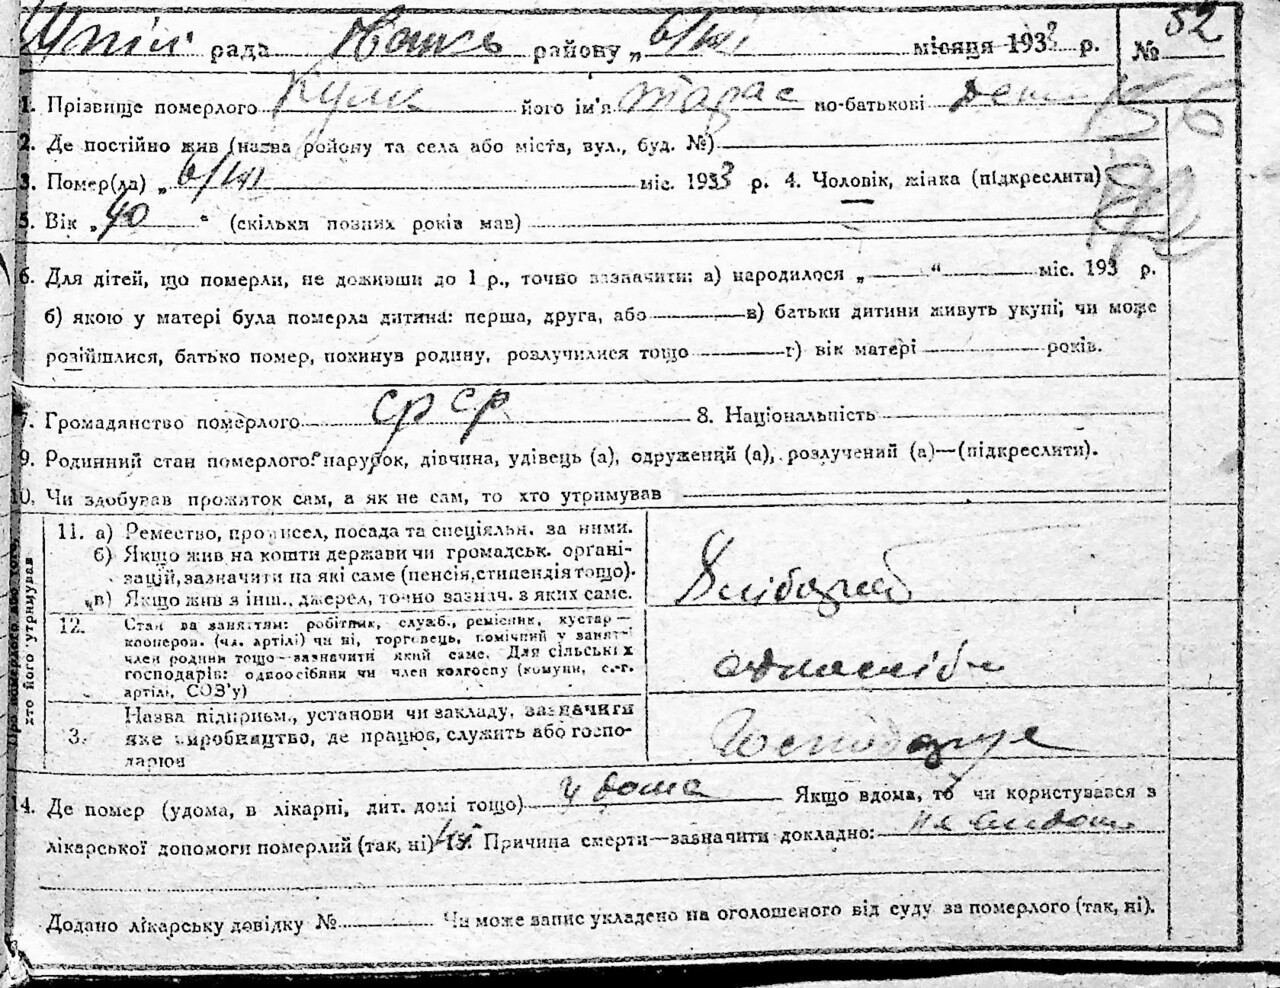 рада району „6/VII місяця 1933 р. № 52
1. Прізвище померлого Кулик його ім'я Тарас по-батькові
2. Де постійно жив (назва району та села або міста, вул., буд. №)
3. Помер(ла) „6/VII міс. 1933 р. 4. Чоловік, жінка (підкреслити)
5. Вік „40 “ (скільки повних років мав)
6. Для дітей, що померли, не доживши до 1 р., точно зазначити: а) народилося „ “ міс. 193 р.
б) якою у матері була померла дитина: перша, друга, або в) батьки дитини живуть укупі, чи може
розійшлися, батько помер, покинув родину, розлучилися тощо г) вік матері років.
7. Громадянство померлого СРСР 8. Національність
9. Родинний стан померлого: парубок, дівчина, удівець (а), одружений (а), розлучений (а)—(підкреслити).
10. Чи здобував прожиток сам, а як не сам, то хто утримував
Про померлого або того, хто його утримував
11. а) Ремество, промисел, посада та спеціяльн. за ними.
б) Якщо жив на кошти держави чи громадськ. органі-
зацій, зазначити на які саме (пенсія, стипендія тощо).
в) Якщо жив з інш., джерел, точно зазнач. з яких саме.
Хлібороб
12. Стан за заняттям: робітник, служб., ремісник, кустар—
кооперов. (чл. артілі) чи ні, торговець, помічний у занятті
член родини тощо—зазначити який саме. Для сільських
господарів: одноосібник чи член колгоспу (комуни, с.-г.
артілі, СОЗ'у)
одноосібн
3. Назва підприєм., установи чи закладу, зазначити
яке виробництво, де працює, служить або госпо-
дарює
Господарює
14. Де помер (удома, в лікарні, дит. домі тощо) у дома Якщо вдома, то чи користувався з
лікарської допомоги померлий (так, ні) ні. Причина смерти—зазначити докладно:
Додано лікарську довідку № Чи може запис укладено на оголошеного від суду за померлого (так, ні).